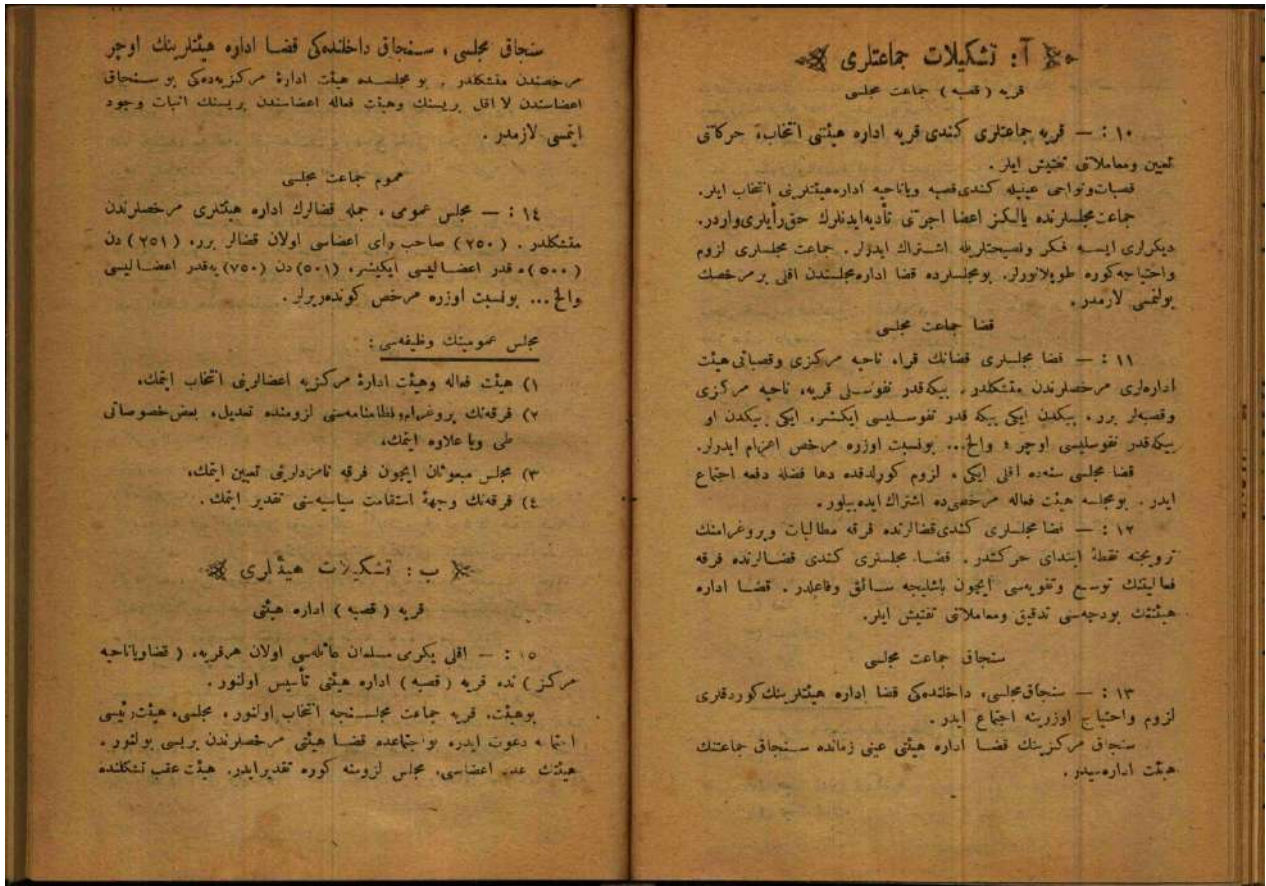 آ: تشكیلات جماعتلری
قریه ( قصبه ) جماعت مجلسی
١٠ : — قریه جماعتلری كندی قریه اداره هیئتی انتخاب، حركاتی
تعیین ومعاملاتی تفتیش ایلر.
قصبات ونواحی عینیله كندی قصبه ویاناحیه اداره هیئتلرینی انتخاب ایلر.
جماعت مجلسلرنده یالكز اعضا اجرتی تأدیه ایدنلرك حق رأیلری واردر.
دیكرلری ایسه فكر ونصیحتلریله اشتراك ایدرلر. جماعت مجلسلری لزوم
واحتیاجه كوره طوپلانورلر. بومجلسلرده قضا اداره مجلسندن اقلی برمرخصك
بولنمسی لازمدر.
قضا جماعت مجلسی
١١ : — قضا مجلسلری قضانك قراء ناحیه مركزی وقصباتی هیئت
اداره لری مرخصلرندن متشكلدر. بیكه قدر نفوسلی قریه، ناحیه مركزی
وقصبه لر برر. بیكدن ایكی بیكه قدر نفوسلیسی ایكشر، ایكی بیكدن او
بیكه قدر نفوسلیسی اوچر ؛ والخ... بونسبت اوزره مرخص اعزام ایدرلر.
قضا مجلسی سنه ده اقلی ایكی، لزوم كورلدكده دها فضله دفعه اجتماع
ایدر. بومجلسه هیئت فعاله مرخصی ده اشتراك ایده بیلور.
١٢ : — قضا مجلسلری كندی قضالرنده فرقه مطالبات وپروغرامنك
ترویجنه نقطهٔ ابتدای حركتدر. قضا مجلسلری كندی قضالرنده فرقه
فعالیتنك توسیع وتقویه سی ایچون باشلیجه سائق وفاعلدر. قضا اداره
هیئتنك بودجه سنی تدقیق ومعاملاتی تفتیش ایلر.
سنجاق جماعت مجلسی
١٣ : — سنجاق مجلسی، داخلنده كی قضا اداره هیئتلرینك كوردقلری
لزوم واحتیاج اوزرینه اجتماع ایدر.
سنجاق مركزینك قضا اداره هیئتی عینی زمانده سنجاق جماعتنك
هیئت اداره سیدر.
سنجاق مجلسی، سنجاق داخلنده كی قضا اداره هیئتلرینك اوچر
مرخصندن متشكلدر. بو مجلسده هیئت ادارهٔ مركزیه ده كی بو سنجاق
اعضاسندن لااقل بریسنك وهیئت فعاله اعضاسندن بریسنك اثبات وجود
ایتمسی لازمدر.
عموم جماعت مجلسی
١٤ : — مجلس عمومی، جمله قضالرك اداره هیئتلری مرخصلرندن
متشكلدر. (٢٥٠) صاحب رأی اعضاسی اولان قضالر برر، (٢٥١) دن
(٥٠٠) ه قدر اعضالیسی ایكیشر، (٥٠١) دن (٧٥٠) یه قدر اعضالیسی
والخ... بونسبت اوزره مرخص كوندەریرلر.
مجلس عمومینك وظیفه سی :
١) هیئت فعاله وهیئت ادارهٔ مركزیه اعضالرینی انتخاب ایتمك،
٢) فرقه نك پروغرام، ونظامنامه سنی لزومنده تعدیل، بعض خصوصاتی
طی ویا علاوه ایتمك،
٣) مجلس مبعوثان ایچون فرقه نامزدلرینی تعیین ایتمك،
٤) فرقه نك وجههٔ استقامت سیاسیه سنی تقدیر ایتمك.
ب : تشكیلات هیئتلری
قریه ( قصبه ) اداره هیئتی
١٥ : — اقلی یكرمی مسلمان عائله سی اولان هرقریه، ( قضاویاناحیه
مركز ) نده قریه ( قصبه ) اداره هیئتی تأسیس اولنور.
بوهیئت، قریه جماعت مجلسنجه انتخاب اولنور. مجلسی، هیئت رئیسی
اجتماعه دعوت ایدر، بواجتماعده قضا هیئتی مرخصلرندن بریسی بولنور.
هیئتك عدد اعضاسی، مجلس لزومنه كوره تقدیر ایدر. هیئت عقب تشكلنده